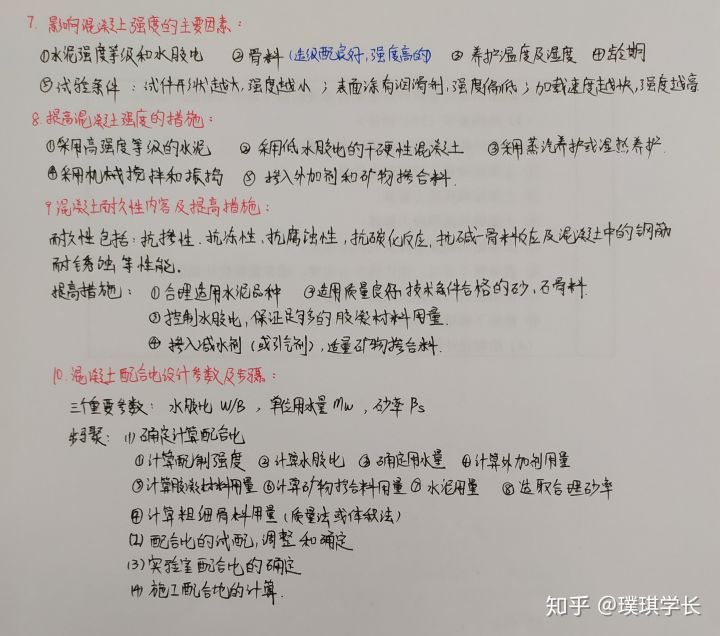 7. 影响混凝土强度的主要因素：
①水泥强度等级和水胶比 ②骨料(选级配良好,强度高的) ③养护温度及湿度 ④龄期
⑤试验条件：试件形状越大,强度越小；表面涂有润滑剂,强度偏低；加载速度越快,强度越高
8. 提高混凝土强度的措施：
①采用高强度等级的水泥 ②采用低水胶比的干硬性混凝土 ③采用蒸汽养护或湿热养护.
④采用机械搅拌和振捣 ⑤掺入外加剂和矿物掺合料.
9 混凝土耐久性内容及提高措施：
耐久性包括：抗渗性、抗冻性、抗腐蚀性，抗碳化反应、抗碱-骨料反应及混凝土中的钢筋
耐锈蚀等性能。
提高措施：①合理选用水泥品种 ②选用质量良好,技术条件合格的砂、石骨料.
③控制水胶比，保证足够多的胶凝材料用量.
④掺入减水剂（或引气剂），适量矿物掺合料.
10. 混凝土配合比设计参数及步骤：
三个重要参数：水胶比 W/B，单位用水量 Mw，砂率 βs
步骤：(1)确定计算配合比
①计算配制强度 ②计算水胶比 ③确定用水量 ④计算外加剂用量
⑤计算胶凝材料用量 ⑥计算矿物掺合料用量 ⑦水泥用量 ⑧选取合理砂率
⑨计算粗细骨料用量(质量法或体积法)
(2) 配合比的试配,调整和确定
(3) 实验室配合比的确定
(4) 施工配合比的计算.
知乎 @璞琪学长